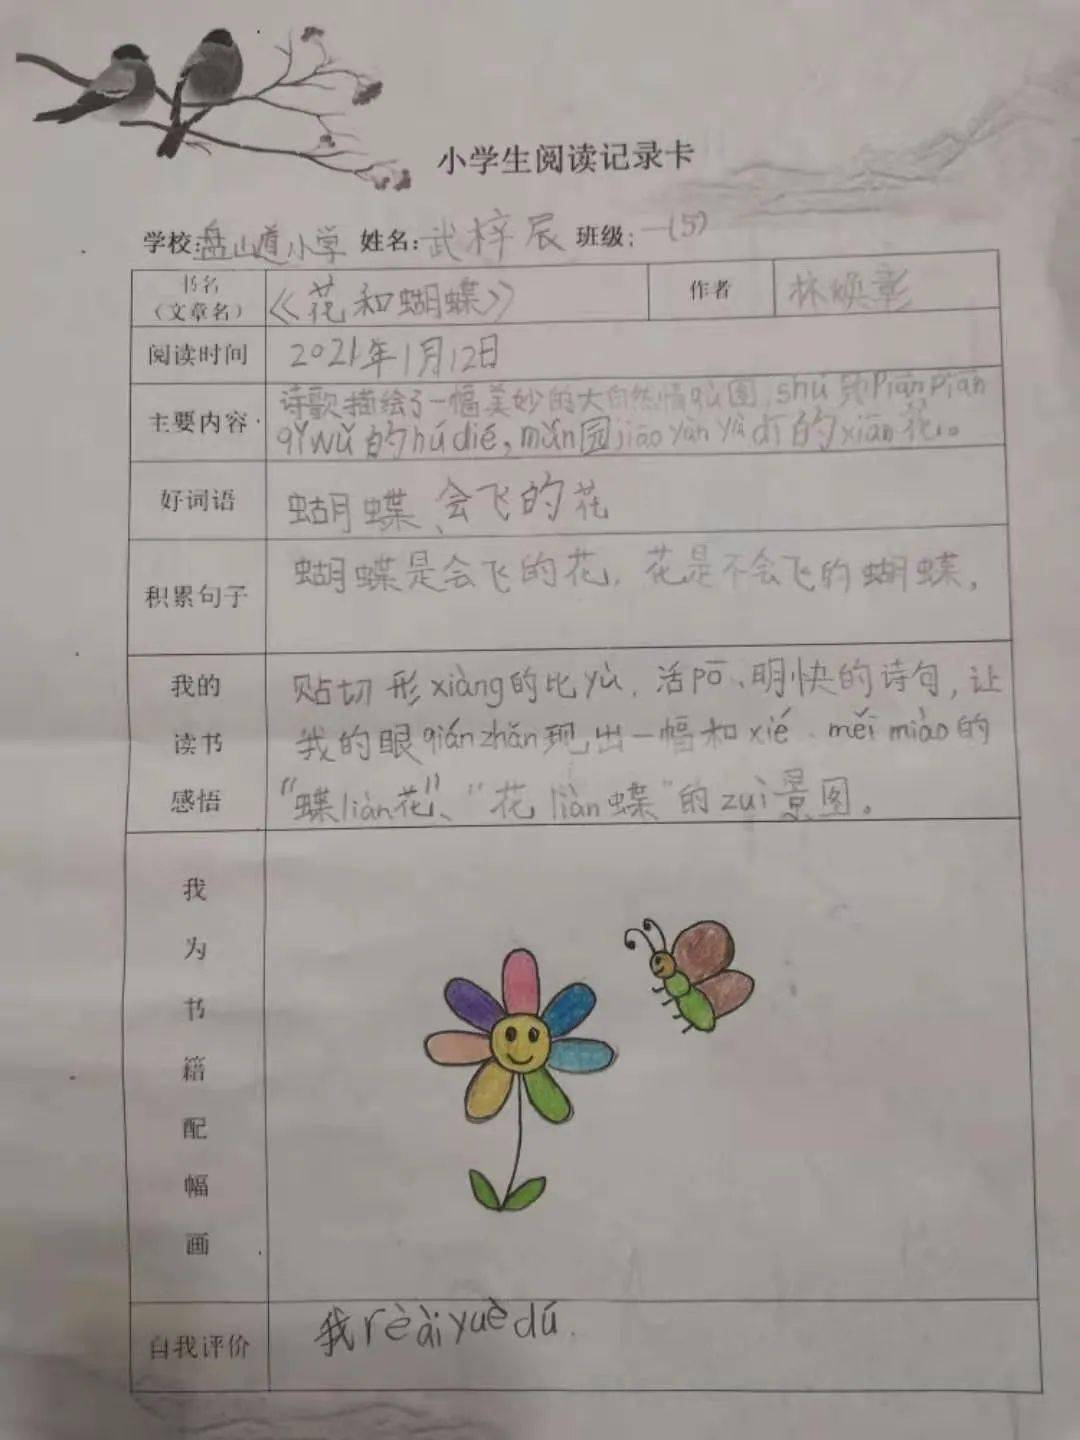 小学生阅读记录卡
学校:盘山道小学 姓名:武梓辰 班级:一(5)
书名
(文章名)
《花和蝴蝶》
作者
林焕彰
阅读时间
2021年1月12日
主要内容
诗歌描绘了一幅美妙的大自然情qù图,shǔ 只Piān Piān
qǐ wǔ 的hú dié,mǎn园jiāo yàn yù dī的xiān花。
好词语
蝴蝶、会飞的花
积累句子
蝴蝶是会飞的花,花是不会飞的蝴蝶,
我的
读书
感悟
贴切形xiàng的比yù,活pō、明快的诗句,让
我的眼qián zhǎn现出一幅和xié、měi miào的
“蝶liàn花”、“花liàn蝶”的zuì景图。
我
为
书
籍
配
幅
画
自我评价
我rè ài yuè dú.